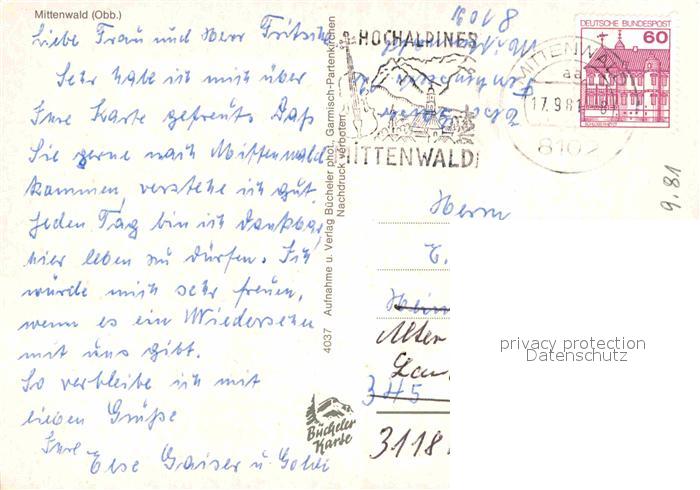 Mittenwald (Obb.)
Liebe Frau und Herr Fritsche
Sehr habe ich mich über
Ihre Karte gefreut. Daß
Sie gerne nach Mittenwald
kommen, verstehe ich gut.
Jeden Tag bin ich dankbar,
hier leben zu dürfen. Ich
würde mich sehr freuen,
wenn es ein Wiedersehen
mit uns gibt.
So verbleibe ich mit
lieben Grüße
Ihre
Else Gaiser u.
4037 Aufnahme u. Verlag Bücheler phot., Garmisch-Partenkirchen
Nachdruck verboten
Bücheler
Karte
HOCHALPINES
MITTENWALD
MITTENWALD
aa
17.9.81
8102
DEUTSCHE BUNDESPOST
60
9.81
8108
Herrn
E.
Alter
345
3118
privacy protection
Datenschutz